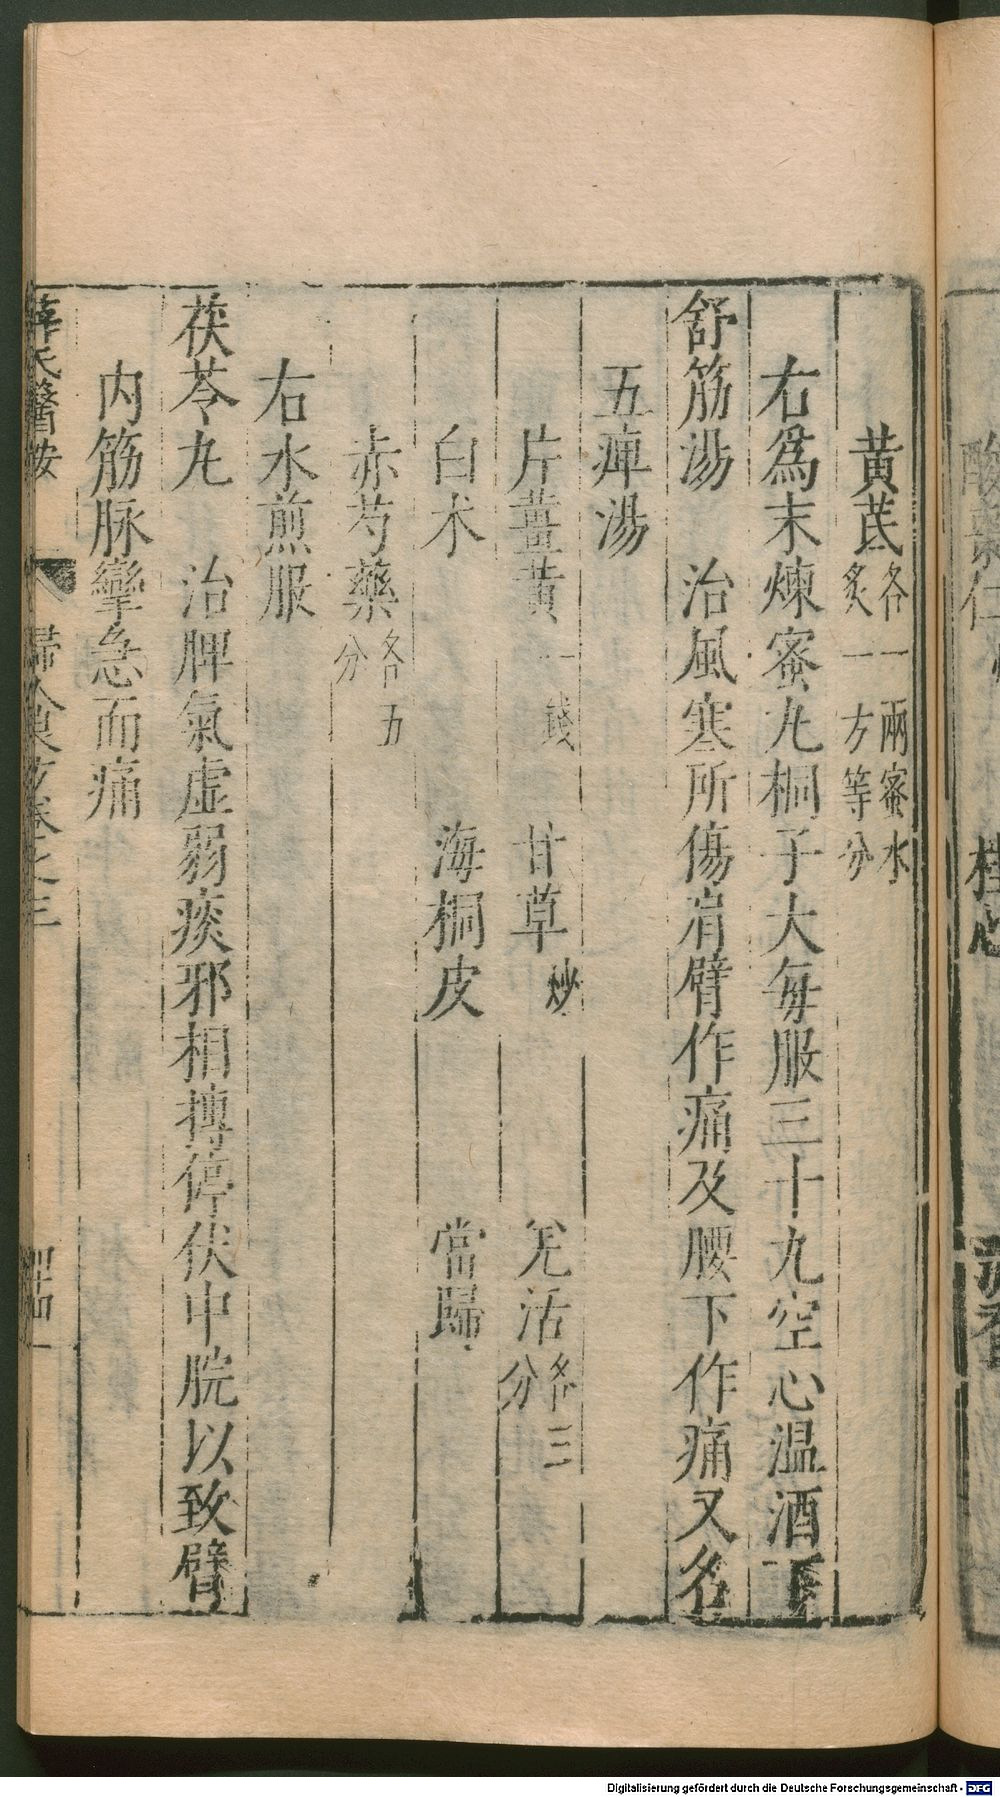 黃芪各一兩蜜水炙一方等分
右爲末煉蜜丸桐子大每服三十丸空心溫酒下
舒筋湯 治風寒所傷肩臂作痛及腰下作痛又名
五痺湯
片薑黃一錢 甘草炒 羌活各三分
白朮 海桐皮 當歸
赤芍藥各五分
右水煎服
茯苓丸 治脾氣虛弱痰邪相搏停伏中脘以致臂
内筋脉攣急而痛
薛氏醫按 婦人良方卷之三 四十一
酸棗仁 桂心
Digitalisierung gefördert durch die Deutsche Forschungsgemeinschaft - DFG